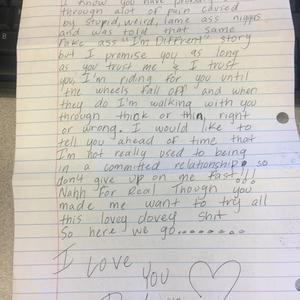 u know you have
through alot of pain caused
by stupid, weird, lame ass niggas
and was told that same
fake ass "I'm Different" story
but I promise you as long
as you trust me & I trust
you, I'm riding for you until
the wheels fall off and when
they do I'm walking with you
through think or thin, right
or wrong. I would like to
tell you ahead of time that
I'm not really used to being
in a committed relationship so
don't give up on me fast!!!
Nahh For Real Though you
made me want to try all
this lovey dovey shit
So here we go........
I Love
You